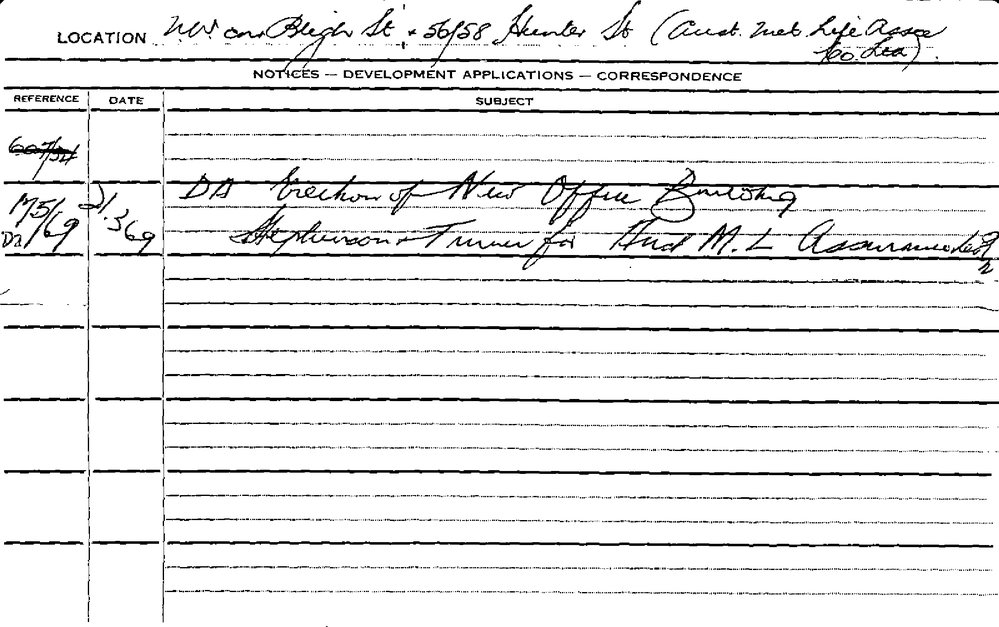 LOCATION NW cnr Bligh St + 56/58 Hunter St (Aust. Met. Life Assce
Co. Ltd).
NOTICES — DEVELOPMENT APPLICATIONS — CORRESPONDENCE
REFERENCE DATE SUBJECT
607/54
175/69 21.3.69 DA Erection of New Office Building
DA Stephenson + Turner for Aust M. L Assurance Co Ltd